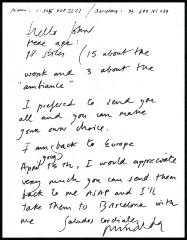 Hello John
Here are:
18 slides (15 about the
work and 3 about the
"ambiance"
I prefered to send you
all and you can make
your own choice.
I am going back to Europe
April, I would appreciate
very much you can send them
back to me ASAP and I'll
take them to Barcelona with
me Saludos cordiales